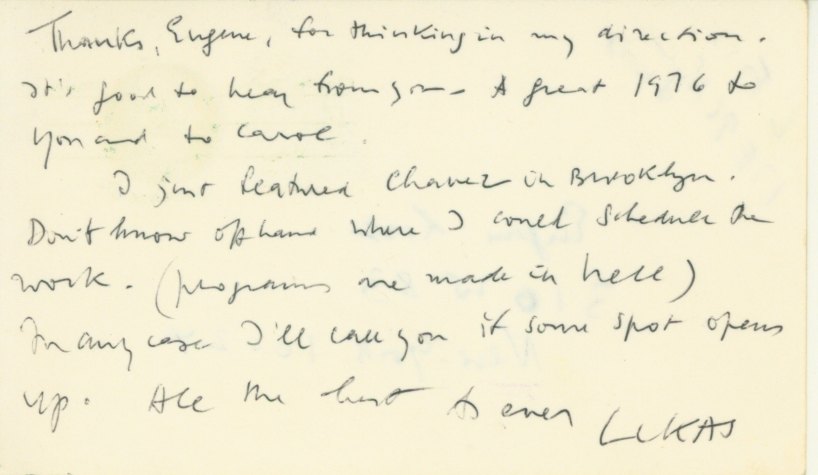 Thanks, Eugene, for thinking in my direction.
It's good to hear from you - A great 1976 to
you and to Carole.
I just featured Chavez in Brooklyn.
Don't know offhand where I could schedule the
work. (programs are made in hell)
In any case I'll call you if some spot opens
up. All the best As ever LUKAS